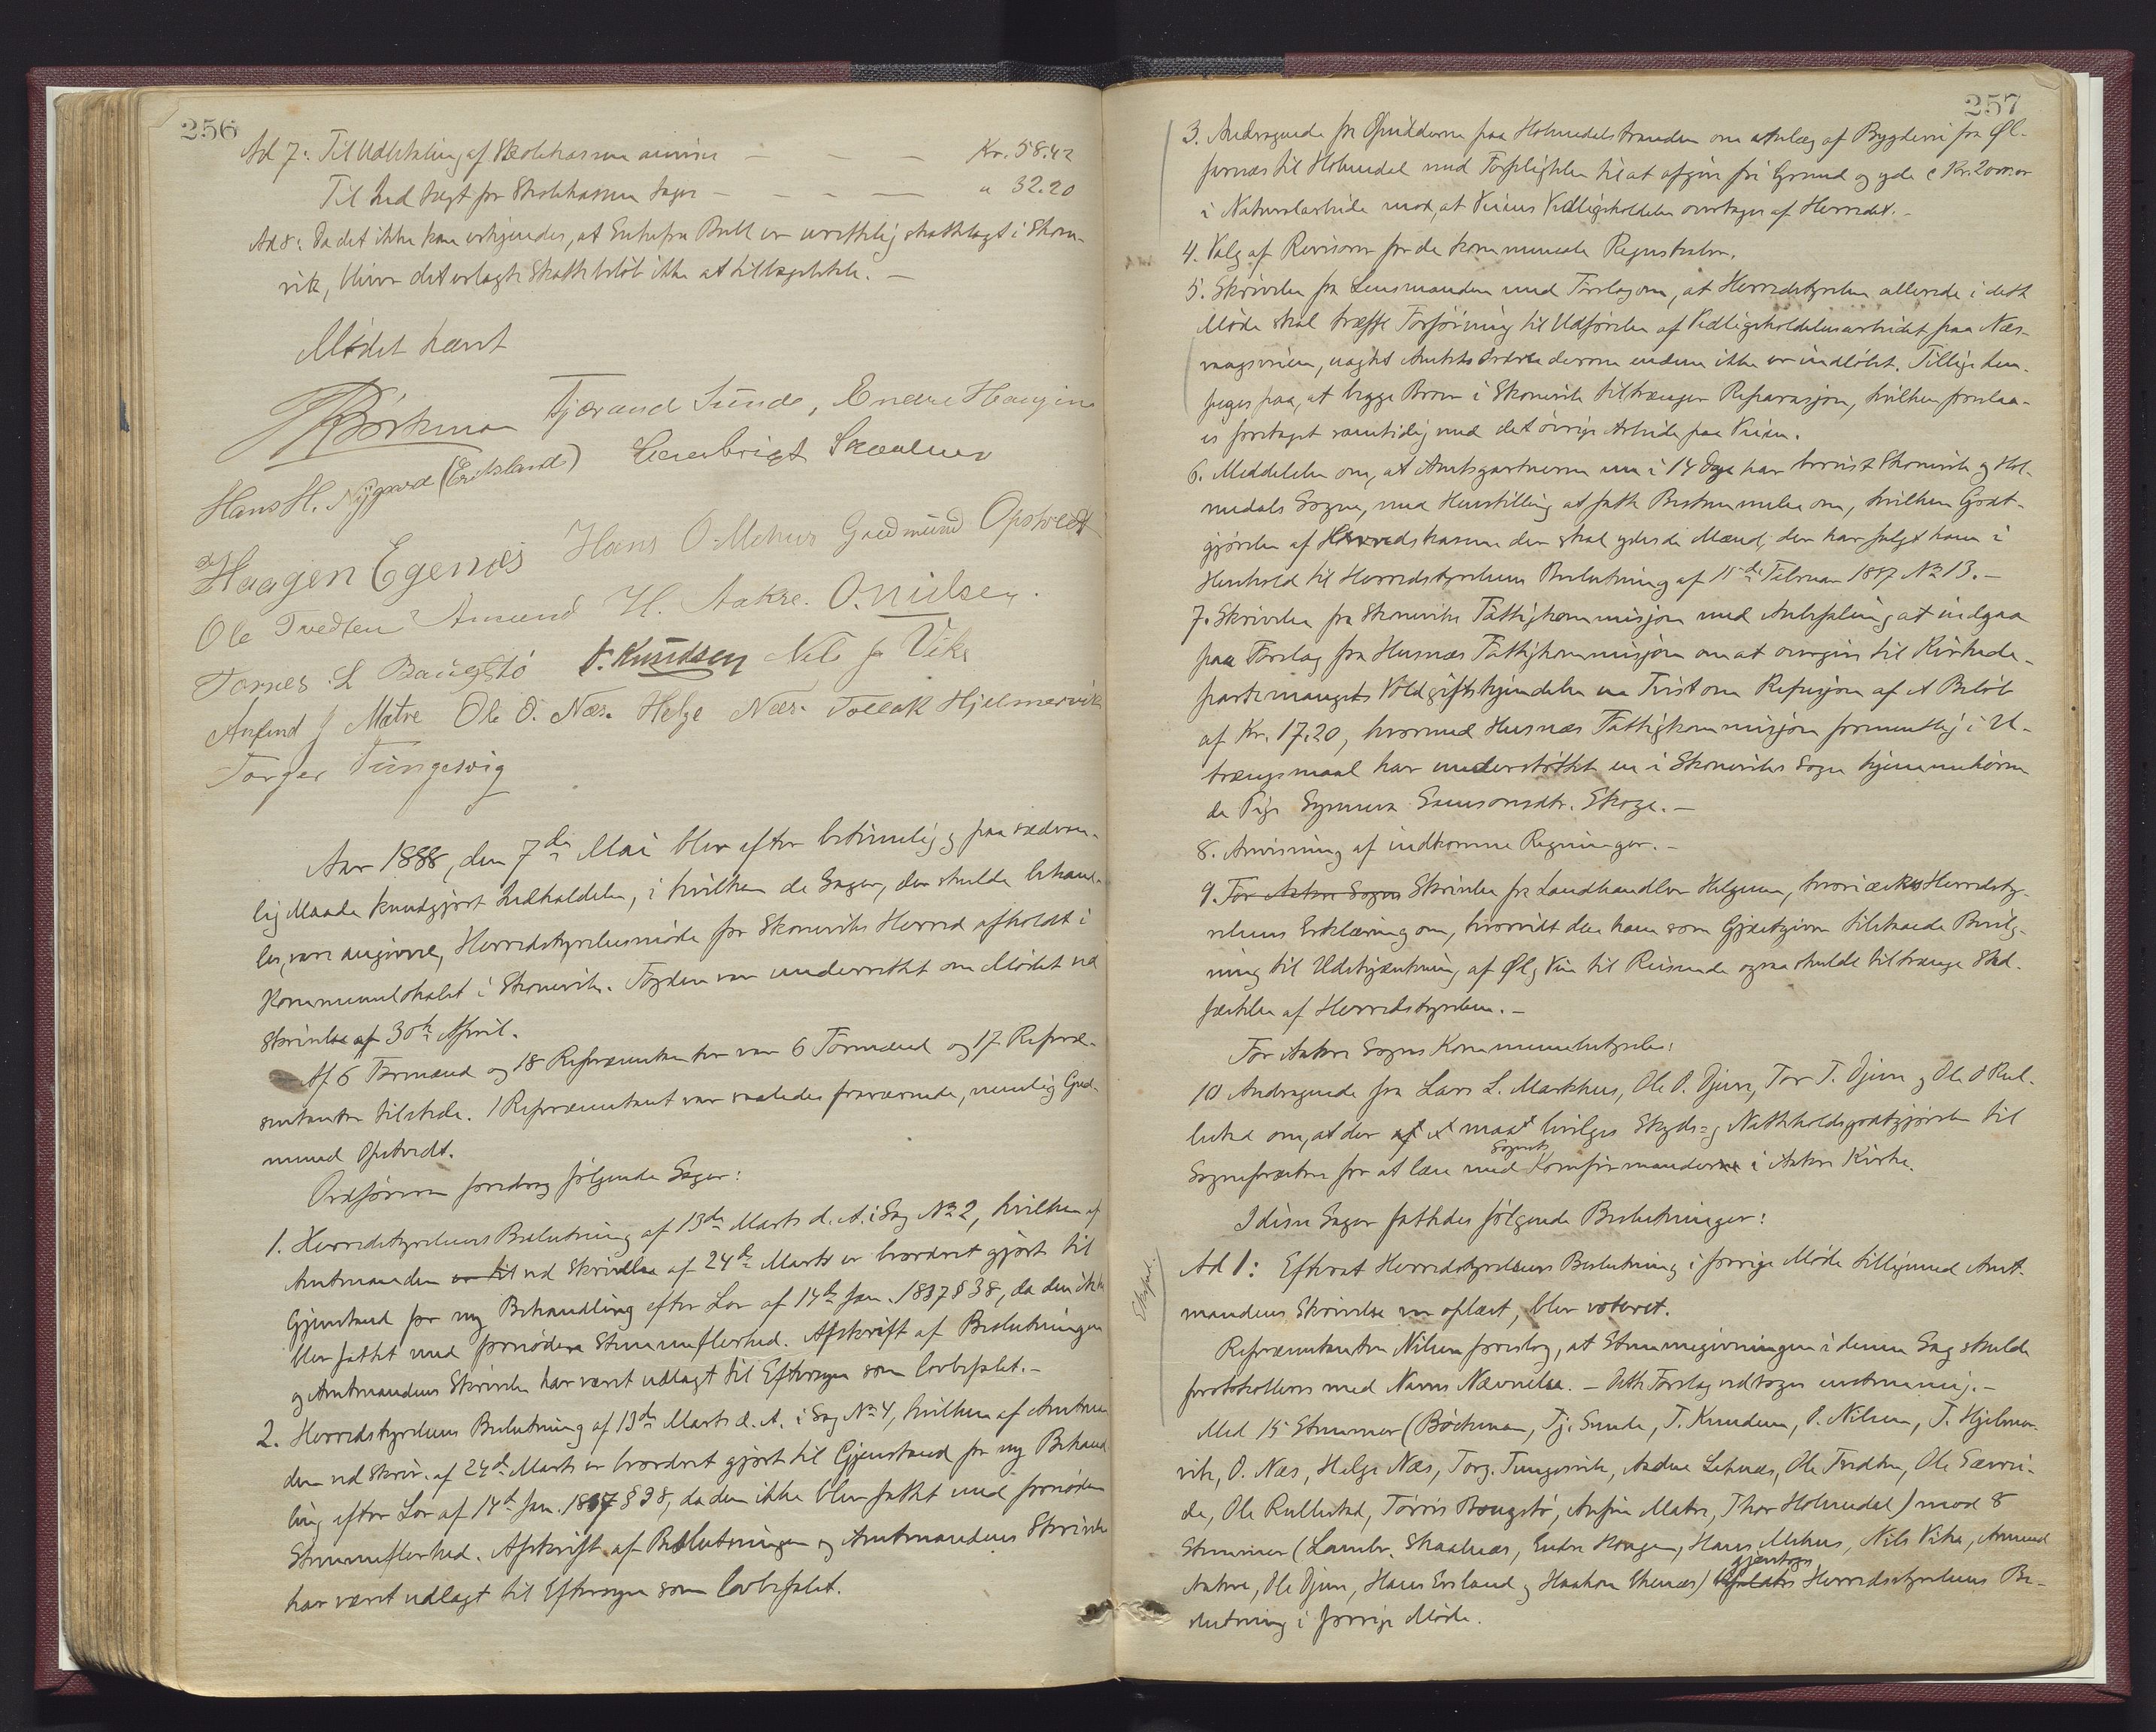 256
Ad 7: Til Udbetaling af Skolekassen anvises — — — Kr. 58.42
Til Indtægt for Skolekassen tages — — — — " 32.20
Ad 8: Da det ikke kan erkjendes, at Enkefru Bull er urettelig skattelagt i Skone-
vik, bliver det erlagte Skattebeløb ikke at tilbagebetale. —
Mødet hævet
Böckman Tjærand Sunde, Endre Haugen
Hans H. Nygaard (Ericksland) Lambrigt Skaalnes
Haagen Egenæs Hans O. Mehus Gudmund Opstvedt
Ole Tvedten Amund H. Aakre. O. Nilsen.
Tørres L Baugstø T. Knudsen Nils J Vike
Anfind J Matre Ole O. Næs. Helge Næs. Tollak Hjelmervik
Torger Tungesvig
Aar 1888, den 7de Mai blev efter betimelig og paa sædvan-
lig Maade kundgjort Indkaldelse, i hvilken de Sager, der skulde behand-
les, vare angivne, Herredstyrelsesmøde for Skoneviks Herred afholdt i
Kommunelokalet i Skonevik. Fogden var underrettet om Mødet ved
Skrivelse af 30te April.
Af 6 Formænd og 18 Repræsentanter var 6 Formænd og 17 Repræ-
sentanter tilstede. 1 Repræsentant var saaledes fraværende, nemlig Gud-
mund Opstvedt.
Ordføreren foredrog følgende Sager:
1. Herredstyrelsens Beslutning af 13de Marts d. A. i Sag No 2, hvilken af
Amtmanden er til ved Skrivelse af 24de Marts er bevordret gjort til
Gjenstand for ny Behandling efter Lov af 14de Jan. 1837 § 38, da den ikke
blev fattet med fornøden Stemmeflerhed. Afskrift af Beslutningen
og Amtmandens Skrivelse har været udlagt til Eftersyn som lovbefalet. —
2. Herredstyrelsens Beslutning af 13de Marts d. A. i Sag No 4, hvilken af Amtman
den ved Skriv. af 24de Marts er bevordret gjort til Gjenstand for ny Behand
ling efter Lov af 14de Jan. 1837 § 38, da den ikke blev fattet med fornøden
Stemmeflerhed. Afskrift af Beslutningen og Amtmandens Skrivelse
har været udlagt til Eftersyn som lovbefalet.
257
3. Andragende fra Opsidderne paa Holmedalsstranden om Anlæg af Bygdevei fra Øl-
fernæs til Holmedal med Forpligtelse til at afgive fri Grund og yde c Kr. 2000.00
i Naturalarbeide mod, at Veiens Vedligeholdelse overtages af Herredet. —
4. Valg af Revisorer for de kommunale Regnskaber.
5. Skrivelse fra Lensmanden med Forslag om, at Herredstyrelsen allerede i dette
Møde skal træffe Forføining til Udførelse af Vedligeholdelsesarbeidet paa Næs-
vaagsveien, uagtet Amtets Ordre derom endnu ikke er indløbet. Tillige hen-
peges paa, at begge Broer i Skonevik tiltrænger Reparasjon, hvilken foreslaa-
es foretaget samtidig med det øvrige Arbeide paa Veien.
6. Meddelelse om, at Amtsgartneren nu i 14 Dage har bereist Skonevik og Hol-
medals Sogne, med Henstilling at fatte Bestemmelse om, hvilken Godt-
gjørelse af Herredskassen der skal ydes de Mænd, der har fulgt ham i
Henhold til Herredstyrelsens Beslutning af 15de Februar 1887 No 13. —
7. Skrivelse fra Skoneviks Fattigkommisjon med Anbefaling at indgaa
paa Forslag fra Husnæs Fattigkommisjon om at overgive til Kirkede-
partemangets Voldgiftskjendelse en Tvist om Refusjon af et Beløb
af Kr. 17.20, hvormed Husnæs Fattigkommisjon formentlig i U-
trængsmaal har understøttet en i Skoneviks Sogn hjemmehøren
de Pige Synneva Samsonsdtr. Skoge. —
8. Anvisning af indkomne Regninger. —
9. For Aakre Sogn Skrivelse fra Landhandler Helgesen, hvori æskes Herredsty-
relsens Erklæring om, hvorvidt den ham som Gjæstgiver tilstaaede Bevilg-
ning til Udskjænkning af Øl og Vin til Reisende ogsaa skulde tiltrænge Stad-
fæstelse af Herredstyrelsen. —
For Aakre Sogns Kommunebestyrelse:
10 Andragende fra Lars L. Markhus, Ole O. Djuve, Tor T. Djuve og Ole O Rul-
lestad om, at der af et maat bevilges Skyds- og Nattholdsgodtgjørelse til
Sognepræsten for at læse med Sognets Konfirmanderne i Aakre Kirke.
I disse Sager fattedes følgende Beslutninger:
Eksped.
Ad 1: Efterat Herredstyrelsens Beslutning i forrige Møde tilligemed Amt-
mandens Skrivelse var oplæst, blev voteret.
Repræsentanten Nilsen foreslog, at Stemmegivningen i denne Sag skulde
protokolleres med Navns Nævnelse. — Dette Forslag vedtoges enstemmig. —
Med 15 Stemmer (Böckman, Tj. Sunde, T. Knudsen, O. Nilsen, T. Hjelmer-
vik, O. Næs, Helge Næs, Torg. Tungesvik, Andne Leknæs, Ole Tvedten, Ole Sævrei-
de, Ole Rullestad, Tørris Baugstø, Anfin Matre, Thor Holmedal) mod 8
Stemmer (Lambr. Skaalnæs, Endre Haugen, Hans Mehus, Nils Vike, Amund
Aakre, Ole Djuve, Hans Ersland og Haakon Ekenæs) gjentoges Herredsstyrelsens Be-
slutning i forrige Møde.